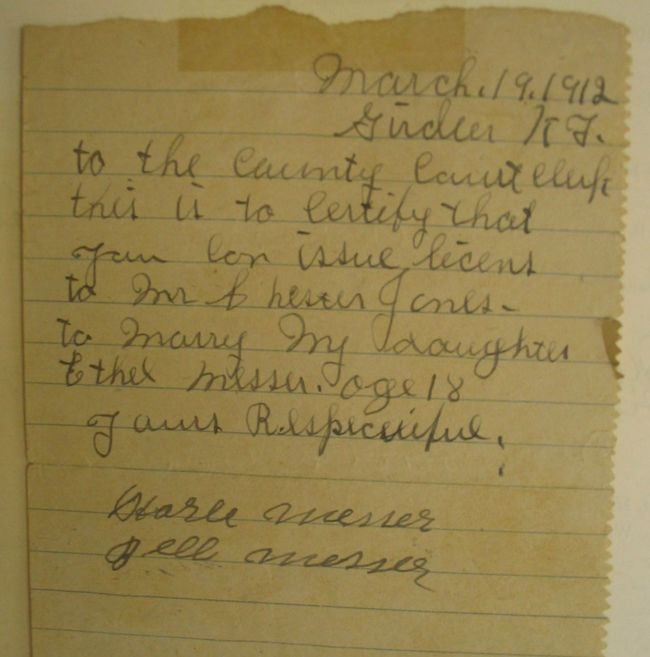 March. 19. 1912
Girdler KY.
to the County Court Clerk
this is to Certify that
you Can issue licens
to Mr Chester Jones-
to Marry My daughter
Ethel Messer. age 18
yours Respectfuful,
Messer
Bell Messer